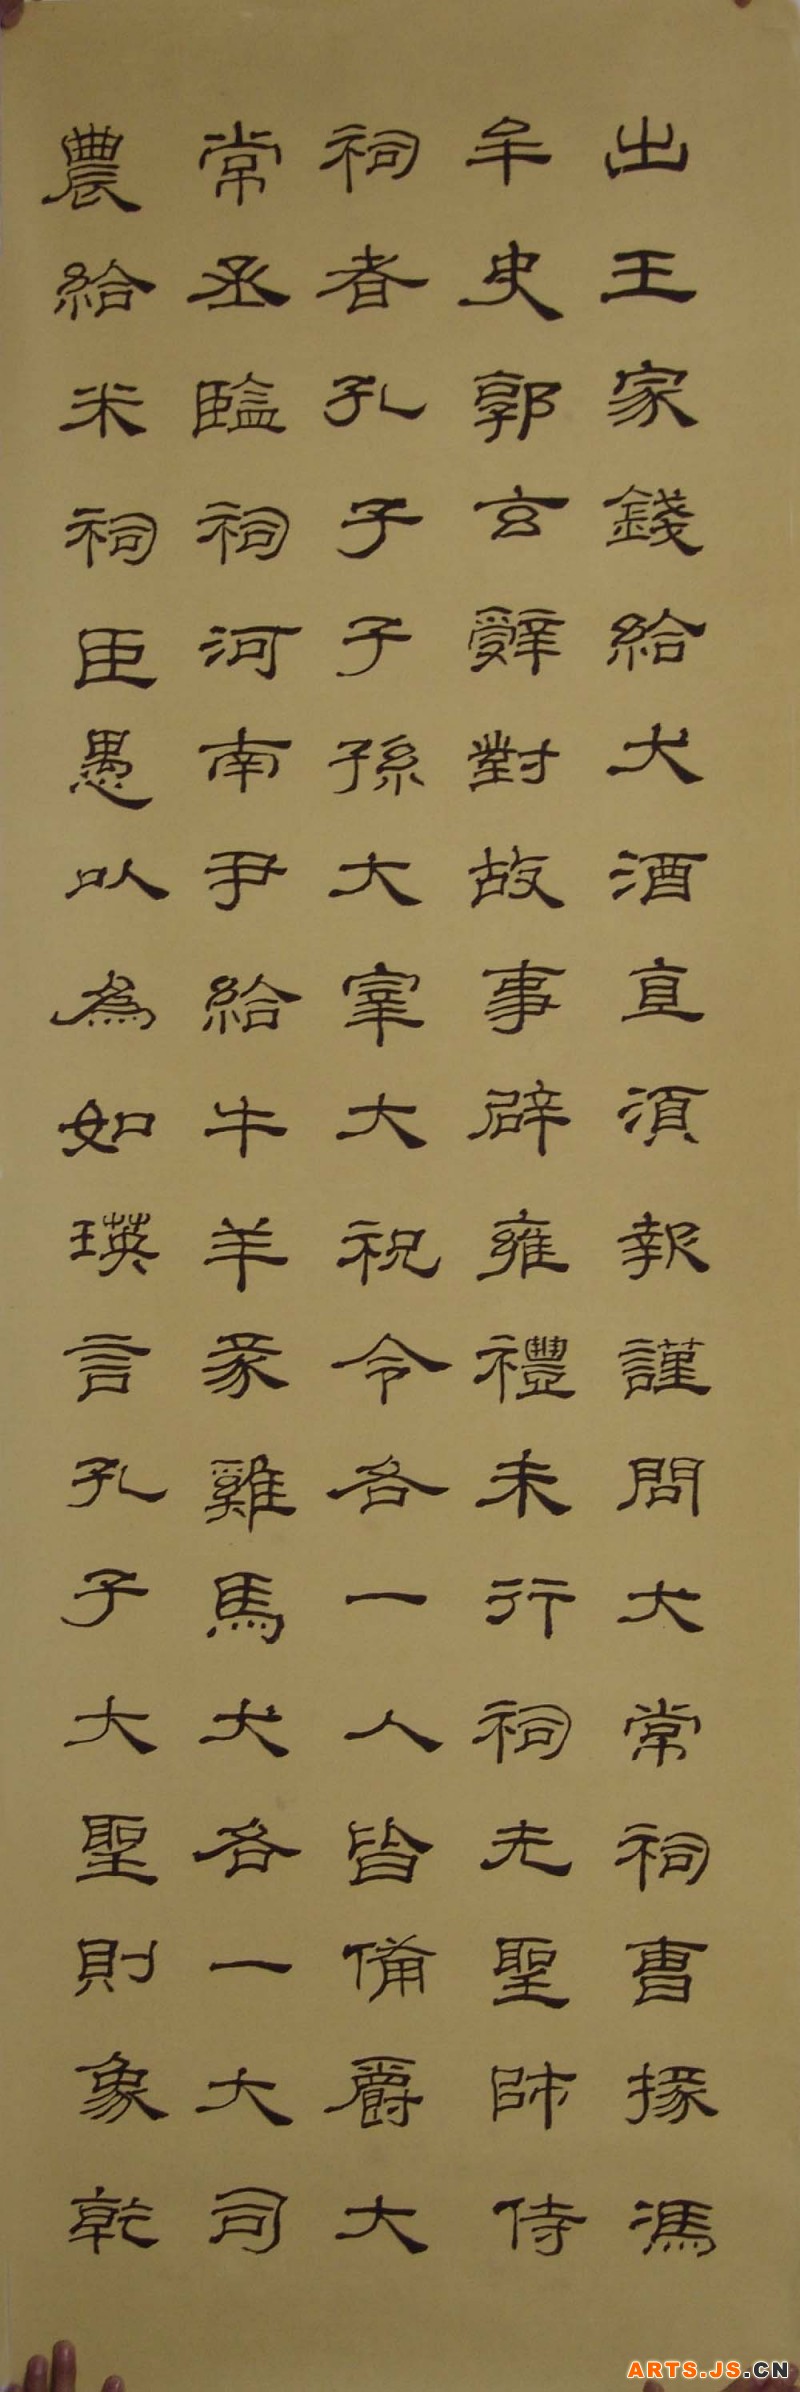 出王家錢給犬酒直須報謹問大常祠曹掾馮
牟史郭玄辭對故事辟雍禮未行祠先聖師侍
祠者孔子子孫大宰大祝令各一人皆備爵大
常丞臨祠河南尹給牛羊豕雞馬犬各一大司
農給米祠臣愚以為如瑛言孔子大聖則象乾
ARTS.JS.CN